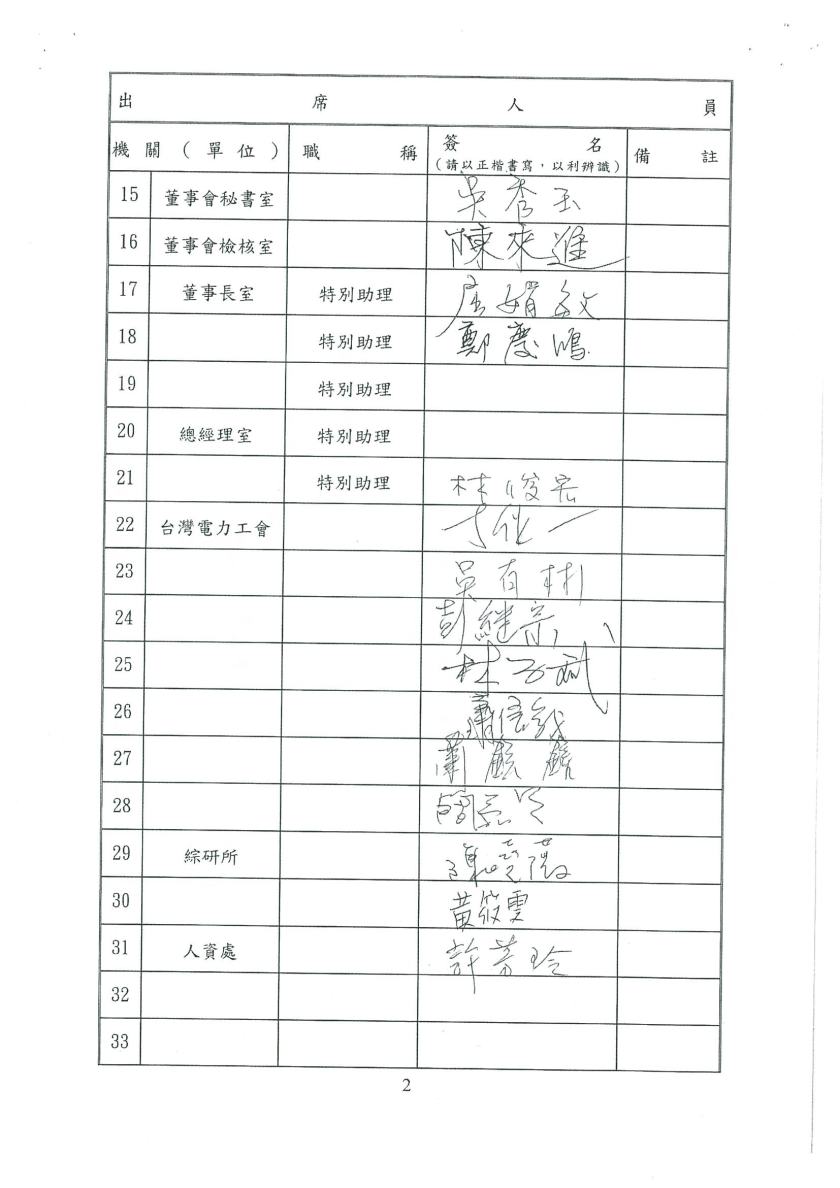 出席人員
機關(單位) 職稱 簽名 備註
(請以正楷書寫，以利辨識)
15 董事會秘書室 吳秀玉
16 董事會檢核室 陳來進
17 董事長室 特別助理
18 特別助理 鄭慶鴻
19 特別助理
20 總經理室 特別助理
21 特別助理 林俊宏
22 台灣電力工會
23 吳有彬
24 彭繼宗
25 杜子斌
26
27
28
29 綜研所
30 黃筱雯
31 人資處 許芳玲
32
33
2